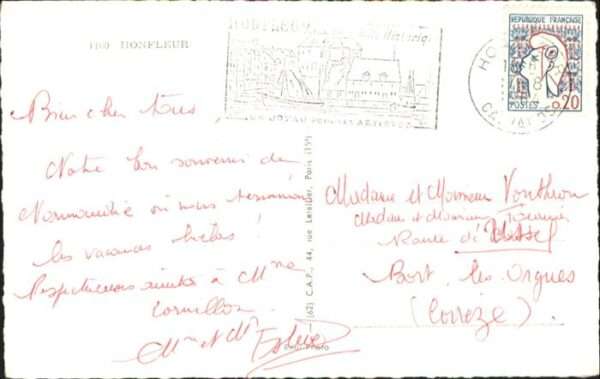 1160 HONFLEUR
HONFLEUR
UN JOYAU POUR LES ARTISTES
REPUBLIQUE FRANCAISE
POSTES 0,20
HO
CALVADOS
Bien cher Tous,
Notre bon souvenir de
Normandie où nous
les vacances hélas !
Respectueuse amitié à Mme
Cornillon
Mme et Mr
(62) C.A.P., 44, rue Letellier, Paris (15e)
Madame et Monsieur Vonthron
Madame et Monsieur
Route d'Ussel
Bort les Orgues
(Corrèze)